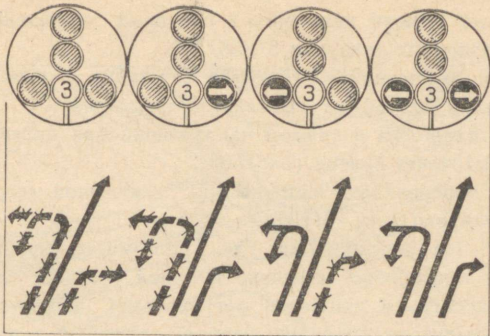 3 3 3 3